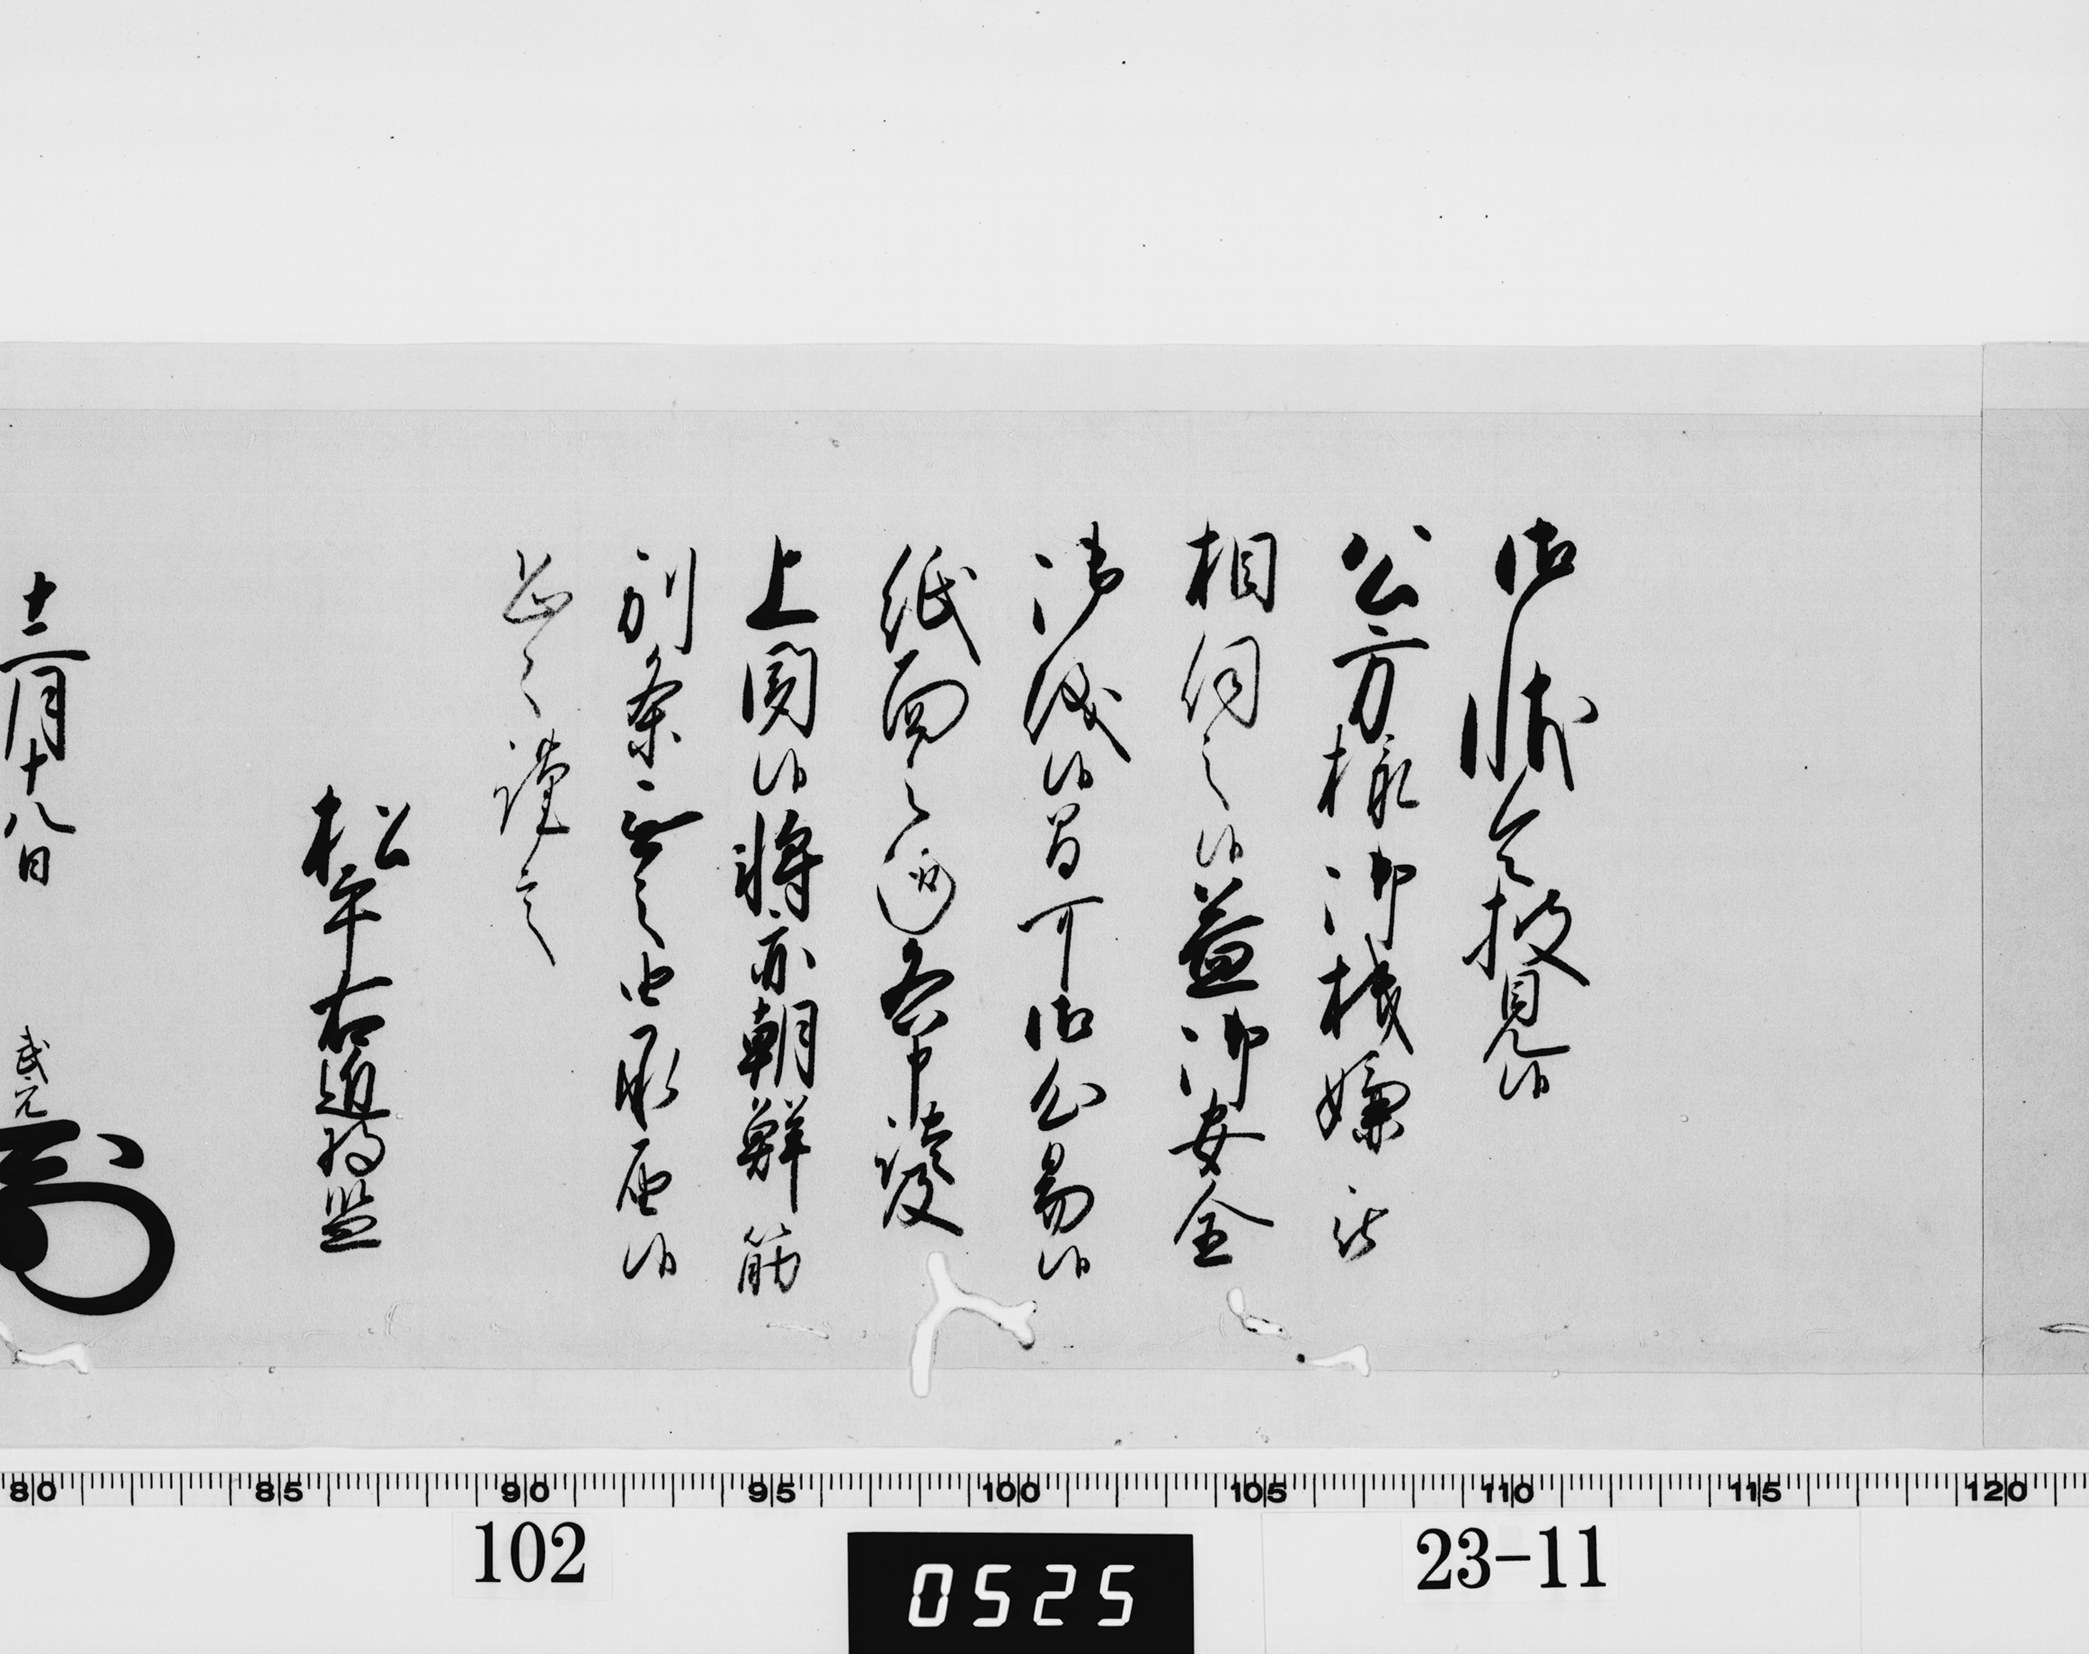 御状令披見候
公方様御機嫌被
相伺之候益御安全
御儀候間可御心易候
紙面之通各申談及
上聞候将亦朝鮮筋
別条無之由承届候
恐々謹言
松平右近将監
十二月十八日
武元
80 85 90 95 100 105 110 115 120
102
0525
23-11